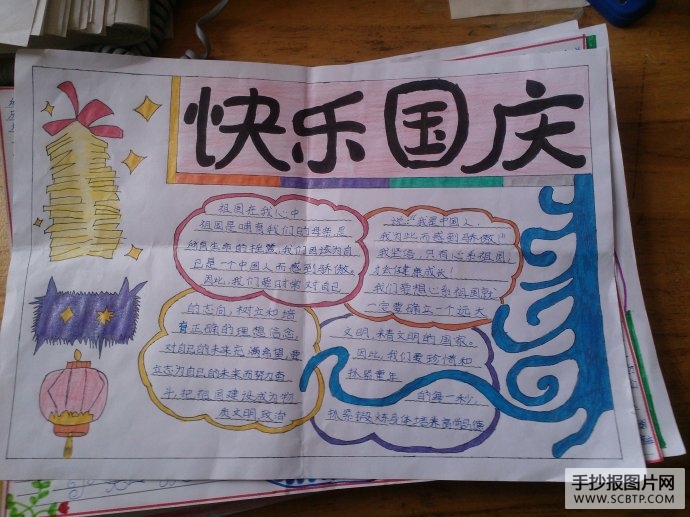 快乐国庆
祖国在我心中
祖国是哺育我们的母亲,是
生命的摇篮,我们应该为自
己是一个中国人而感到骄傲。
因此,我们要时常对自己
说:“我是中国人,
我为此而感到骄傲!”
我坚信,只有心系祖国,
才会健康成长!
我们要想心系祖国就
一定要确立一个远大
的志向,树立和培
育正确的理想信念,
对自己的未来充满希望,要
立志为自己的未来而努力奋
斗,把祖国建设成为物
质文明,政治
文明,精神文明的国家。
因此,我们要珍惜和
抓紧童年
的每一秒,
抓紧锻炼身体培养高尚品德
手抄报图片网
WWW.SCBTP.COM